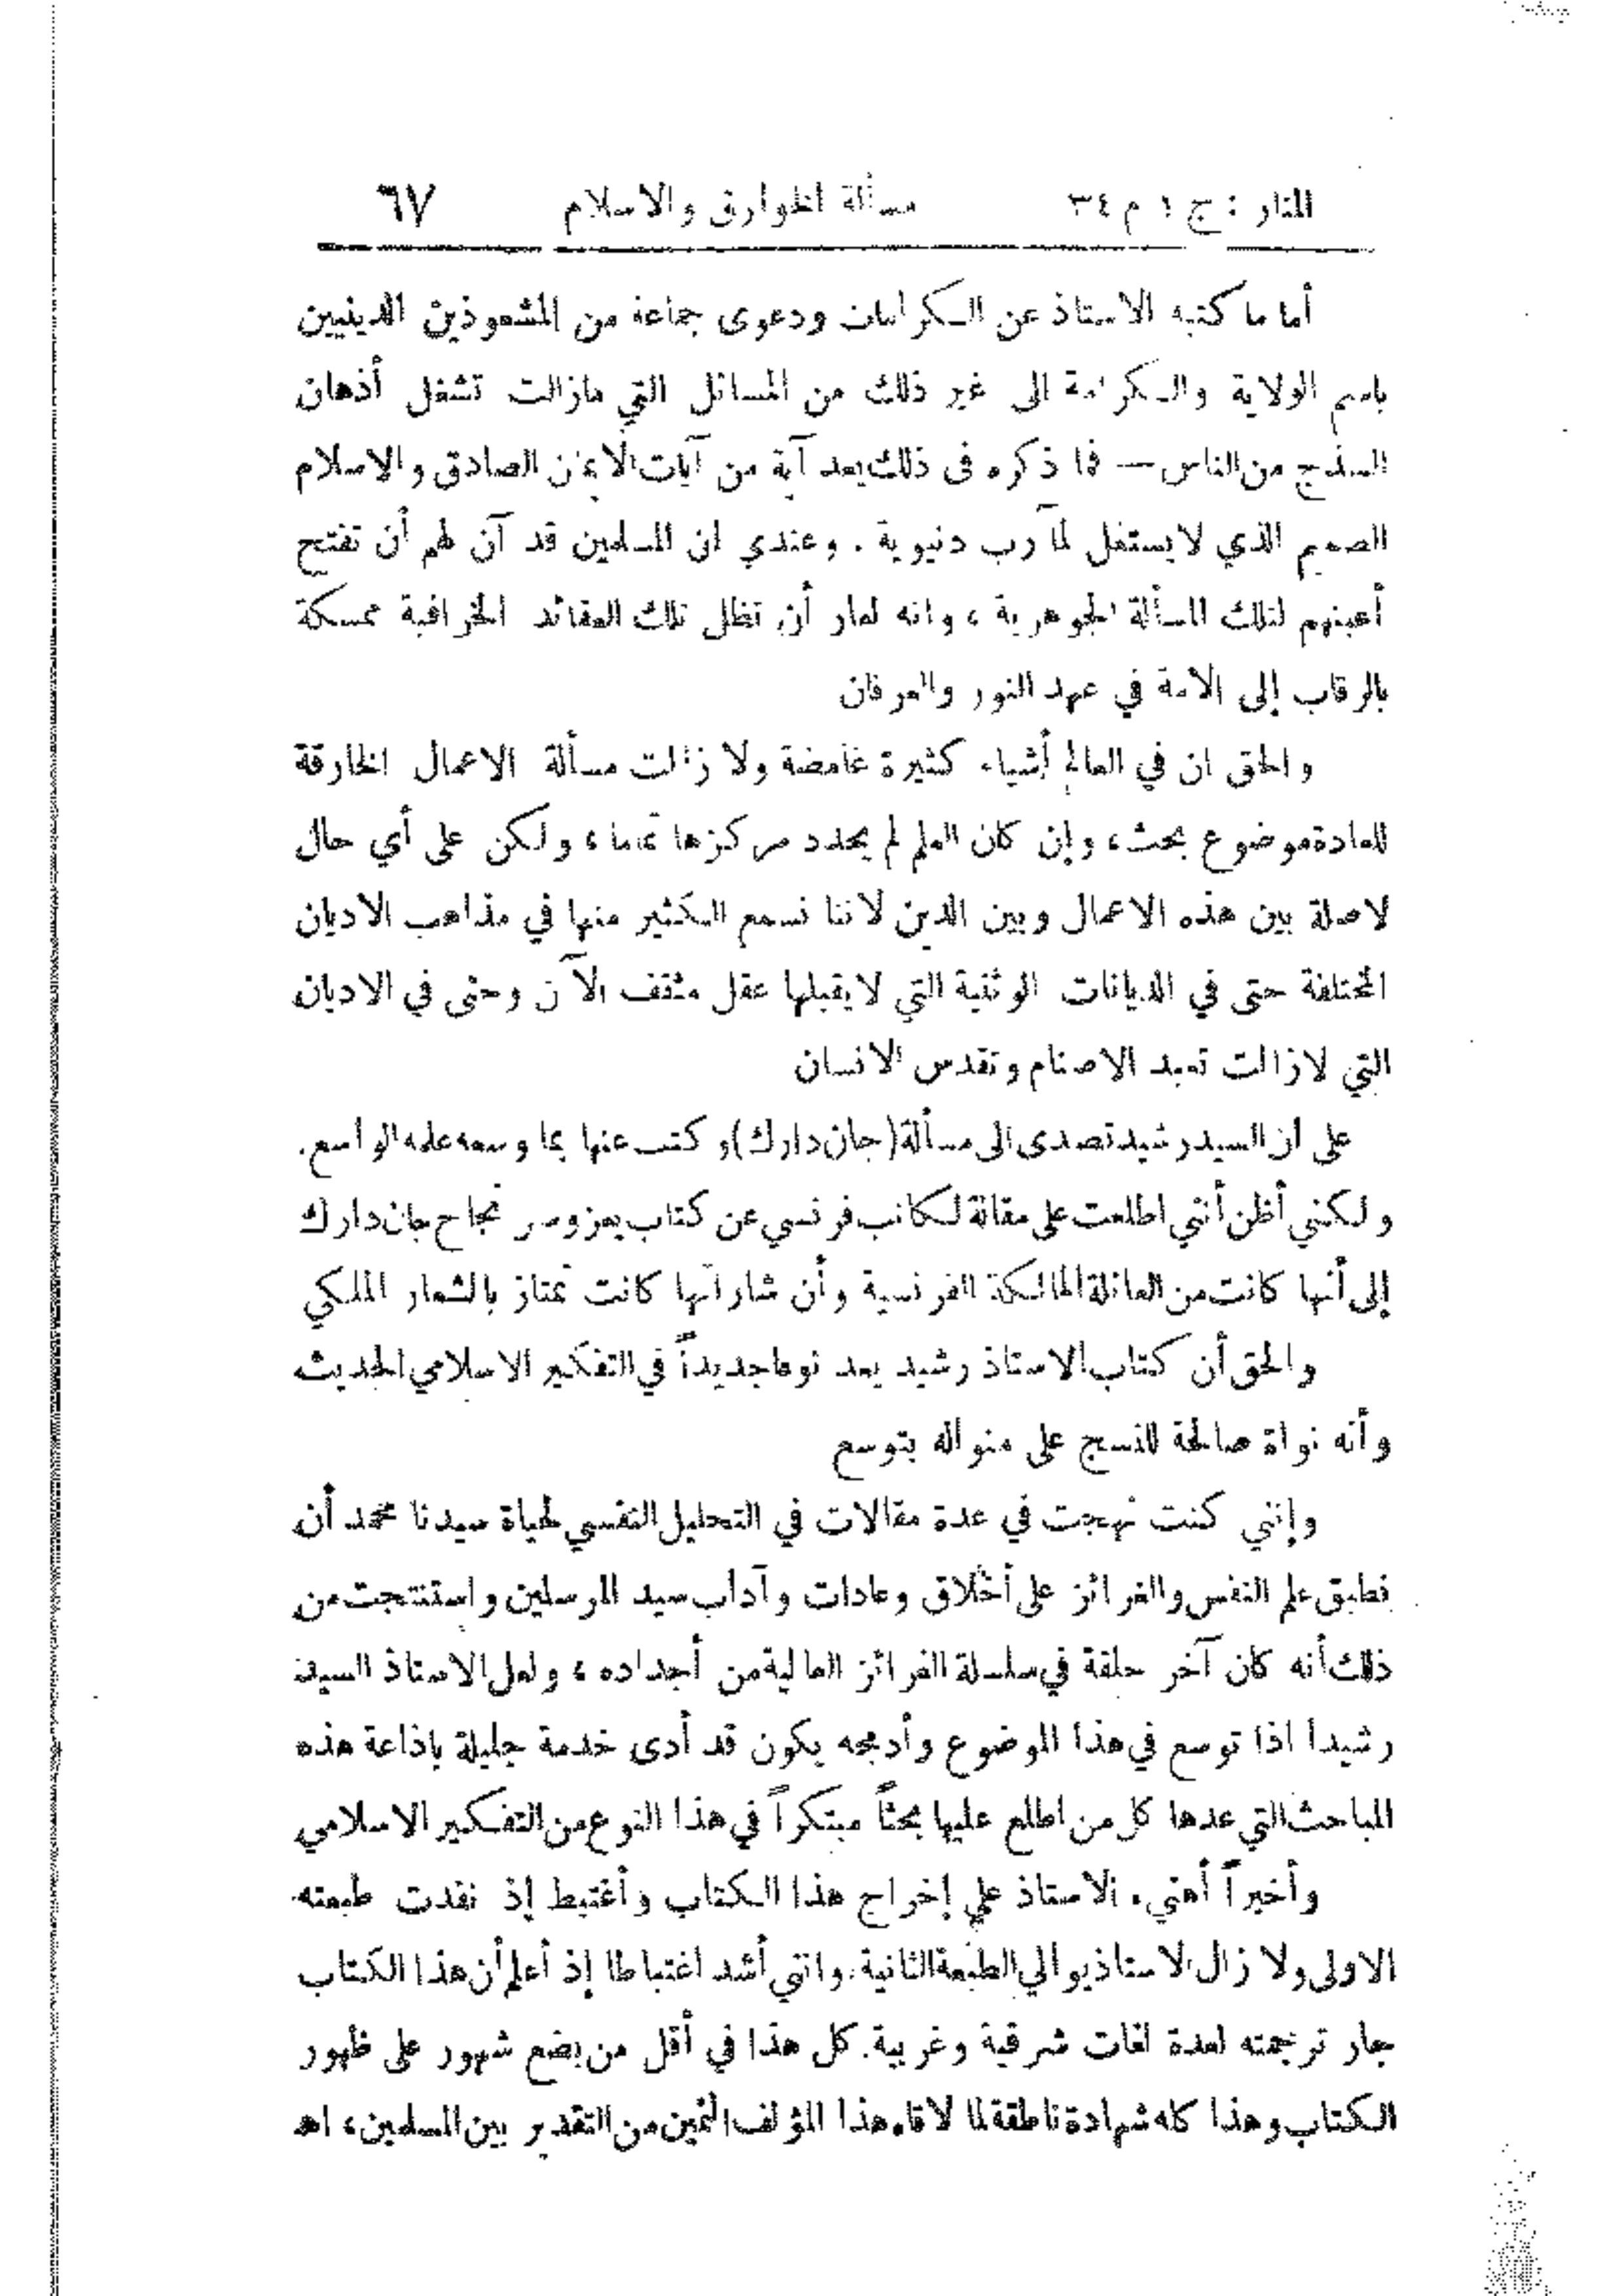 المنار : ج ١ م ٣٤ مسألة الخوارق والاسلام ٦٧
أما ما كتبه الاستاذ عن الكرامات ودعوى جماعة من المشعوذين الدينيين
باسم الولاية والكرامة الى غير ذلك من المسائل التي مازالت تشغل أذهان
السذج من الناس — فما ذكره فى ذلك يعد آية من آيات الايمان الصادق والاسلام
الصميم الذي لا يستغل لمآرب دنيوية . وعندي ان المسلمين قد آن لهم أن تفتح
أعينهم لتلك المسألة الجوهرية ، وانه لعار أن تظل تلك العقائد الخرافية ممسكة
بالرقاب إلى الامة في عهد النور والعرفان
والحق ان في العالم أشياء كثيرة غامضة ولا زالت مسألة الاعمال الخارقة
للعادة موضوع بحث ، وإن كان العلم لم يحدد مركزها تماما ، ولكن على أي حال
لاصلة بين هذه الاعمال وبين الدين لاننا نسمع الكثير منها في مذاهب الاديان
المختلفة حتى في الديانات الوثنية التي لا يقبلها عقل مثقف الآن وحتى في الاديان
التي لازالت تعبد الاصنام وتقدس الانسان
على ان السيد رشيد تصدى الى مسألة (جان دارك) وكتب عنها بما وسعه علمه الواسع .
ولكنني أظن أنني اطلعت على مقالة لكاتب فرنسي عن كتاب يعزو سر نجاح جان دارك
إلى أنها كانت من العائلة المالكة الفرنسية وأن شاراتها كانت تمتاز بالشعار الملكي
والحق أن كتاب الاستاذ رشيد يعد نوعا جديداً في التفكير الاسلامي الحديث
وأنه نواة صالحة للنسج على منواله بتوسع
وإنني كنت نهجت في عدة مقالات في التحليل النفسي لحياة سيدنا محمد أن
نطبق علم النفس والغرائز على أخلاق وعادات وآداب سيد المرسلين واستنتجت من
ذلك أنه كان آخر حلقة في سلسلة الغرائز العالية من أجداده ، ولعل الاستاذ السيد
رشيدا اذا توسع في هذا الموضوع وأدمجه يكون قد أدى خدمة جليلة باذاعة هذه
المباحث التي عدها كل من اطلع عليها بحثاً مبتكراً في هذا النوع من التفكير الاسلامي
وأخيراً أهنيء الاستاذ علي إخراج هذا الكتاب وأغتبط إذ نفدت طبعته
الاولى ولا زال الاستاذ يوالي الطبعة الثانية . وانني أشد اغتباطا إذ أعلم أن هذا الكتاب
جار ترجمته لعدة لغات شرقية وغربية . كل هذا في أقل من بضع شهور على ظهور
الكتاب وهذا كله شهادة ناطقة لما لاقاه هذا المؤلف الثمين من التقدير بين المسلمين ، اهـ